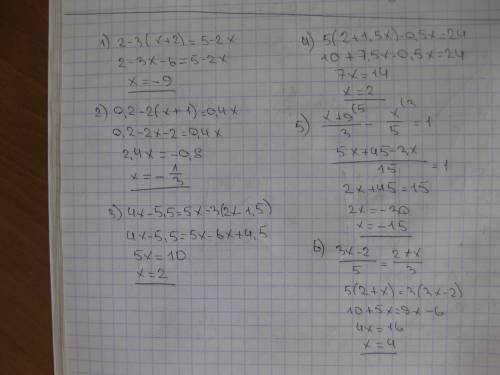 1) 2-3(x+2)=5-2x
2-3x-6=5-2x
x=-9
2) 0,2-2(x+1)=0,4x
0,2-2x-2=0,4x
2,4x=-0,8
x=-1/3
3) 4x-5,5=5x-3(2x-1,5)
4x-5,5=5x-6x+4,5
5x=10
x=2
4) 5(2+1,5x)-0,5x=24
10+7,5x-0,5x=24
7x=14
x=2
5) x+9(5/3 - x(3/5=1
5x+45-3x/15=1
2x+45=15
2x=-30
x=-15
6) 3x-2/5=2+x/3
5(2+x)=3(3x-2)
10+5x=9x-6
4x=16
x=4